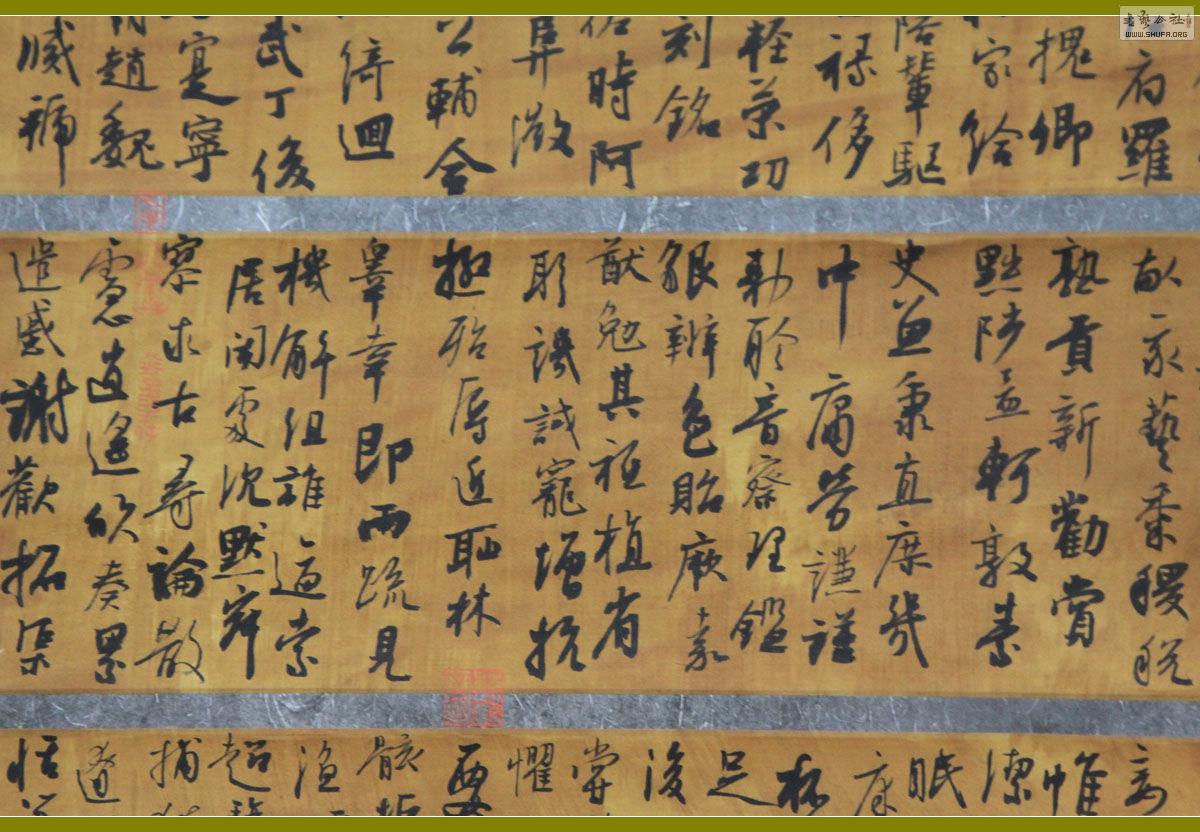 府羅
槐卿
家給
陪輦驅
祿侈
輕策功
刻銘
佐時阿
阜微
公輔合
綺迴
武丁俊
寔寧
趙魏
滅虢
畝我藝黍稷稅
熟貢新勸賞
黜陟孟軻敦素
史魚秉直庶幾
中庸勞謙謹
勑聆音察理鑑
貌辨色貽厥嘉
猷勉其祗植省
躬譏誡寵增抗
極殆辱近恥林
皋幸即兩疏見
機解組誰逼索
居閑處沈默寂
寥求古尋論散
慮逍遙欣奏累
遣慼謝歡招渠
妾
帷
潔
眠
康
杯
足
後
嘗
懼
要
骸垢
超
捕
遼
恬
WWW.SHUFA.ORG